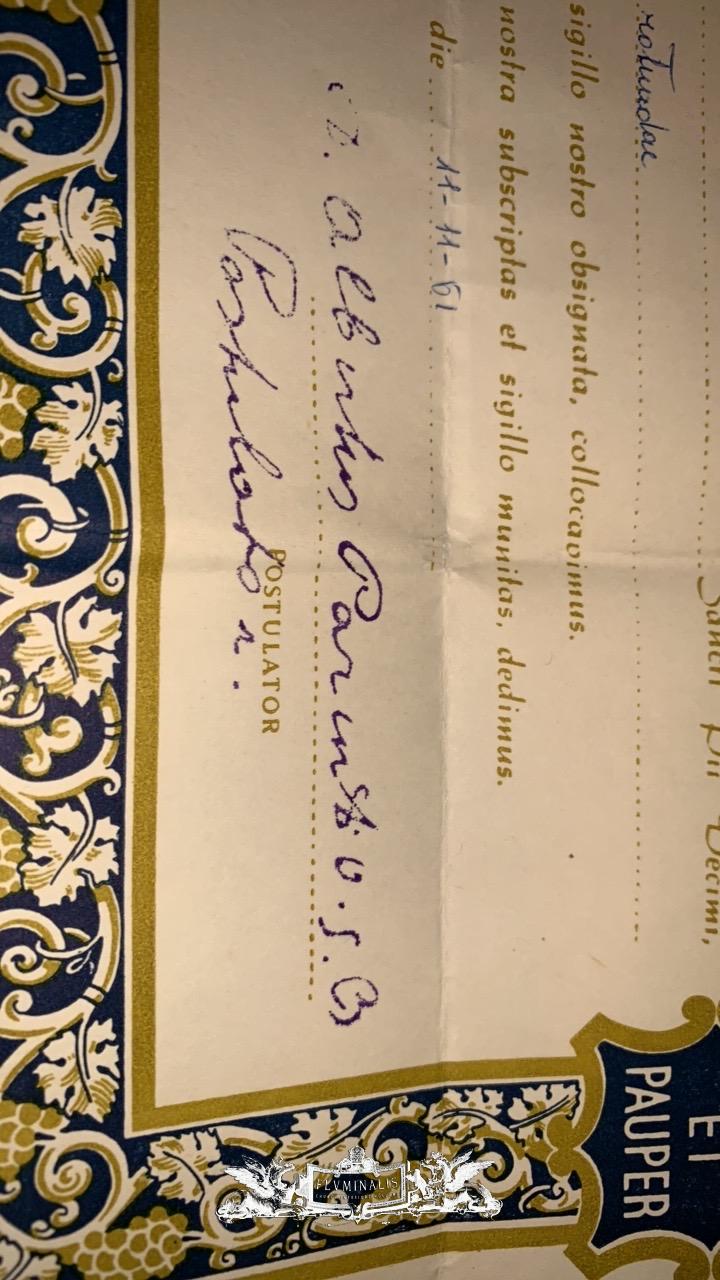 Sancti Pii Decimi,
rotundae
sigillo nostro obsignata, collocavimus.
nostra subscriptas et sigillo munitas, dedimus.
die 11-11-61
D. Albertus Parenti O.S.B
POSTULATOR
Postulator.
ET
PAUPER
FLVMINALIS